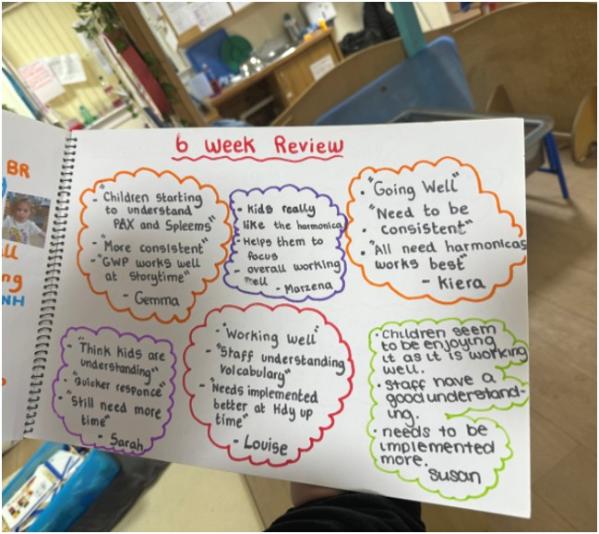 6 Week Review
BR
ll
ng
NH
- "Children starting
to understand"
PAX and Spleems"
- "More consistent"
- "GWP works well
at storytime"
- Gemma
- Kids really
like the harmonica
- Helps them to
focus
- overall working
well - Marzena
- "Going Well"
"Need to be
consistent"
"All need harmonicas
works best"
- Kiera
- "Think kids are
understanding"
- "Quicker responce"
- "Still need more
time"
- Sarah
- "Working well"
- "Staff understanding
volcabulary"
- "Needs implemented
better at tidy up
time"
- Louise
• Children seem
to be enjoying
it as it is working
well.
• Staff have a
good understand-
ing.
• needs to be
implemented
more.
Susan